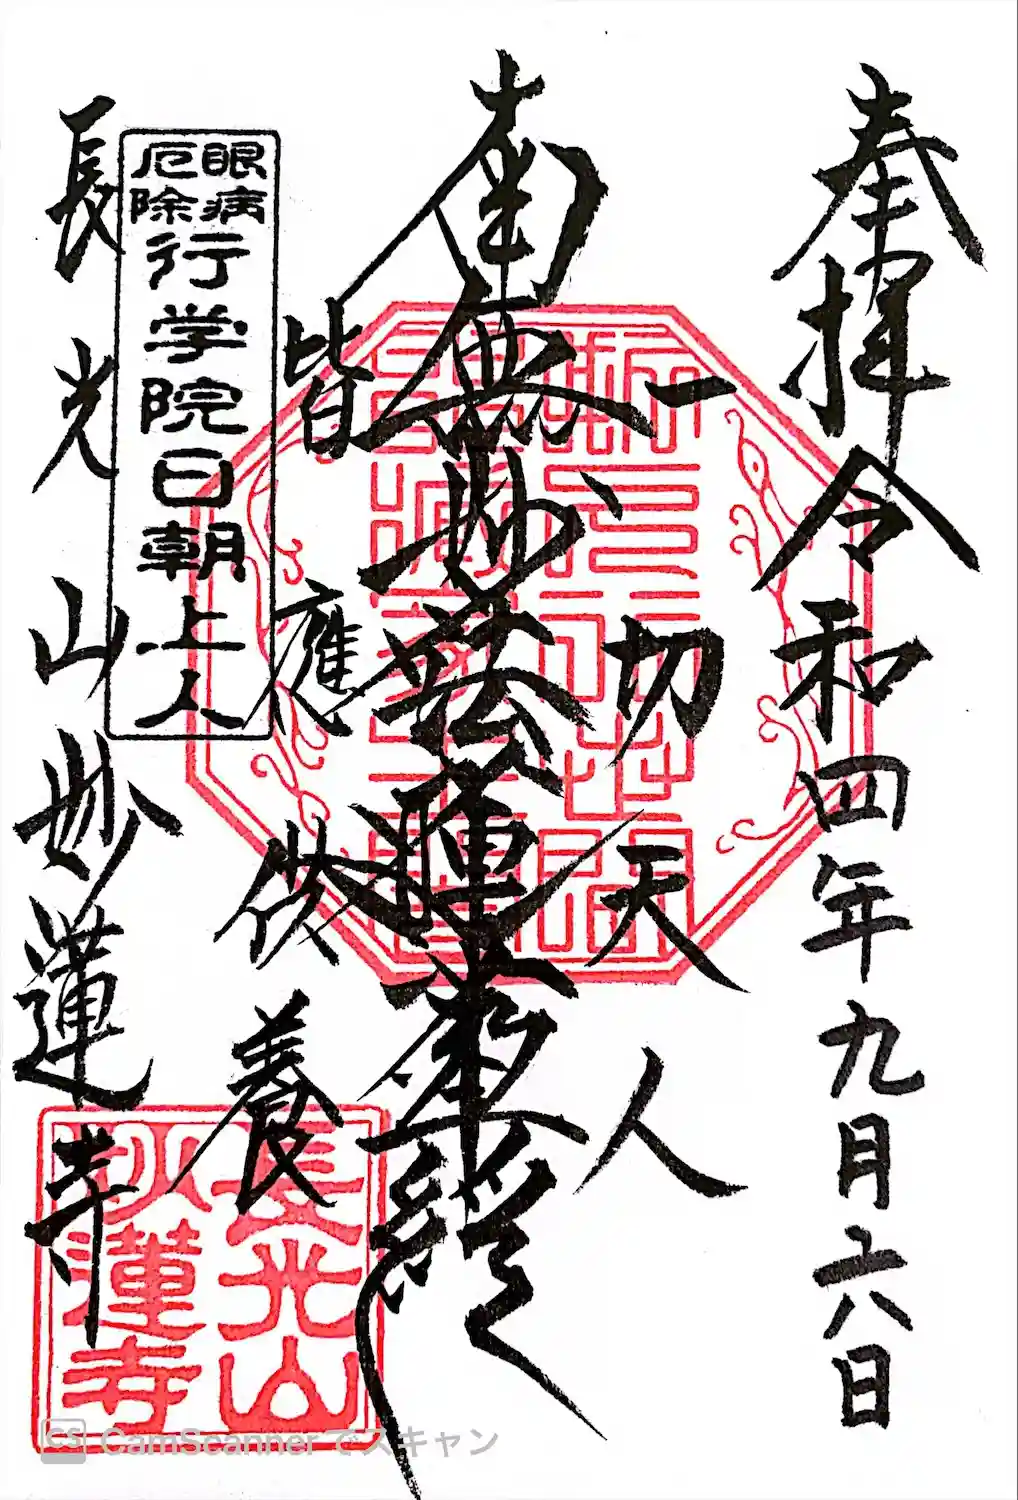 奉拝
令和四年九月六日
一切天人
南無妙法蓮華経
皆應供養
眼病
厄除
行学院日朝上人
長光山妙蓮寺
長光山
妙蓮寺
CS CamScannerでスキャン